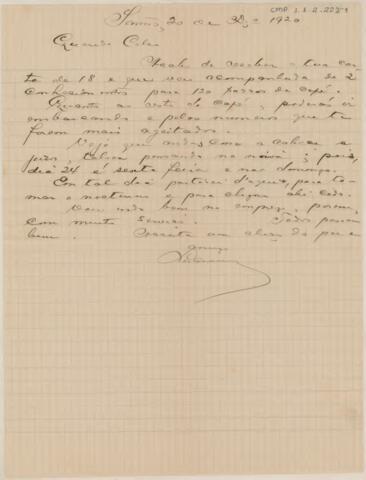 CMP. 1.1.2.
20 de 1920
Querido
Acabo de receber a tua car-
ta de 18 e que veu acompanhada de 2
conhecimentos para 120 saccos de café.
Quanto ao resto do café, poderás ir
embarcando e pelos numeros que te
forem mais ageitados.
Vejo que andas com a cabeça a
juros, talvez pensando na noiva; pois,
dia 24 é sexta feira e não Domingo.
Em tal dia partirei d'aqui, para to-
mar o nocturno e para chegar ahi cedo.
Vou indo bem no emprego, porem,
com muito serviço. Todos passam
bem. Acceita um abraço do pae e
amigo